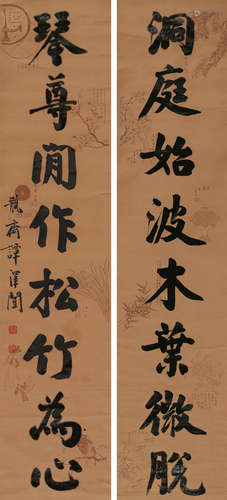 洞庭始波木葉微脫
琴尊閒作松竹為心
瓶齋譚澤闓